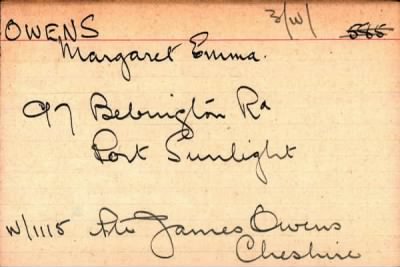 OWENS 3/W/ 585
Margaret Emma.
97 Bebington Rd
Port Sunlight
W/1115 Pte James Owens
Cheshire